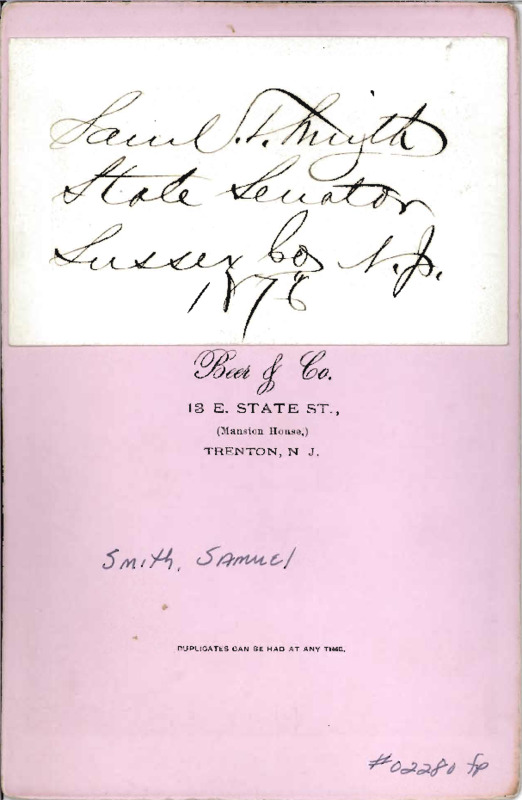 Saml. T. Smith
State Senator
Sussex Co N.J.
1876
Beer & Co.
13 E. STATE ST.,
(Mansion House,)
TRENTON, N J.
Smith, SAMUEL
DUPLICATES CAN BE HAD AT ANY TIME.
#02280 fp